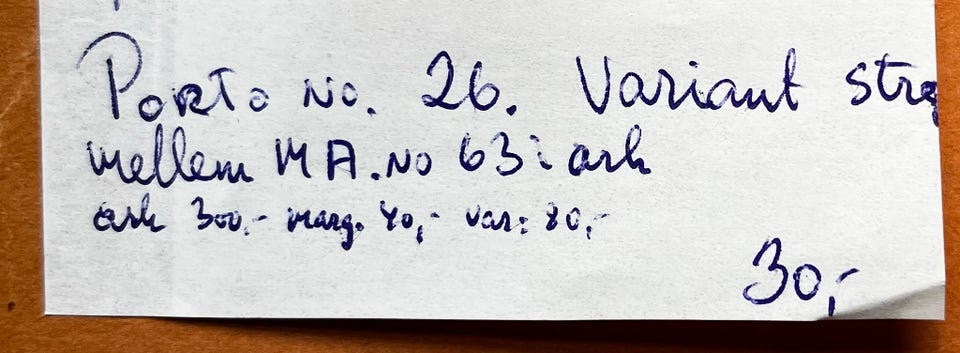 Porto No. 26. Variant
mellem MA. No 63 i ark
ark 300,- marg. 40,- var: 80,-
30,-